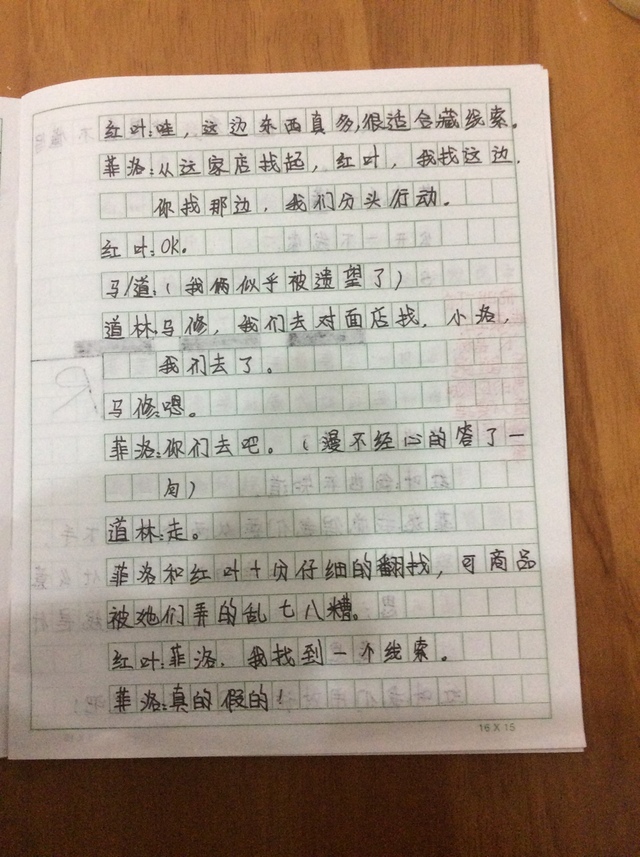 红叶:哇，这边东西真多,很适合藏线索。
菲洛:从这家店找起，红叶，我找这边.
你找那边，我们分头行动。
红叶:OK。
马/道:(我俩似乎被遗望了)
道林:马修，我们去对面店找，小洛，
我们去了。
马修:嗯。
菲洛:你们去吧。(漫不经心的答了一
句)
道林:走。
菲洛和红叶十分仔细的翻找，可商品
被她们弄的乱七八糟。
红叶:菲洛，我找到一个线索。
菲洛:真的假的!
16X15